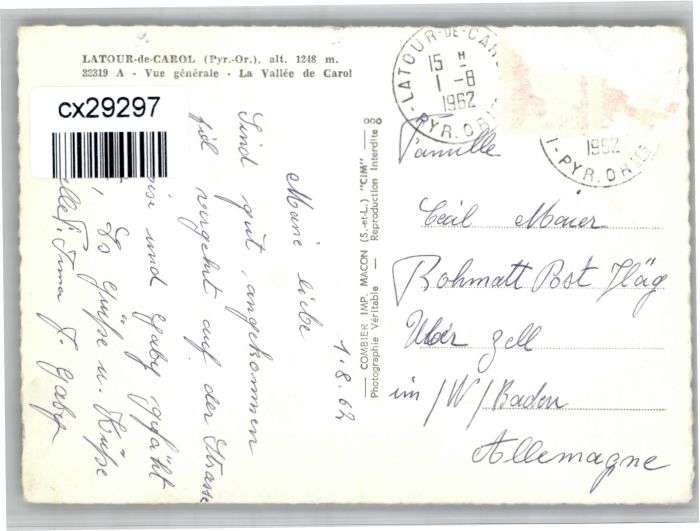 LATOUR-de-CAROL (Pyr.-Or.), alt. 1248 m.
32319 A - Vue générale - La Vallée de Carol
cx29297
LATOUR-DE-CAROL
15 H
1-8
1962
PYR. ORIES
1962
PYR. ORIES
1.8.62
Meine liebe
Sind gut angekommen
viel vergehrt auf der Strasse
und Gaby gefählt
Es Grüße u. Küße
Gaby
COMBIER IMP. MACON (S.-et-L.) "CIM"
Photographie Véritable — Reproduction Interdite
Familie
Cecil Maier
Rohmatt Post Häg
Über Zell
im /W/ Baden
Allemagne